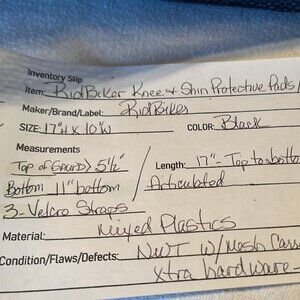 Inventory Slip
Item: RidBiker Knee & Shin Protective Pads/
Maker/Brand/Label: RidBiker
SIZE: 17"H X 10"W COLOR: Black
Measurements
Top of Guard> 5½" / Length: 17" - Top to bottom
Bottom 11" bottom / Articulated
3 - Velcro Straps
Material: Mixed Plastics
Condition/Flaws/Defects: NWT W/Mesh
Xtra hardware